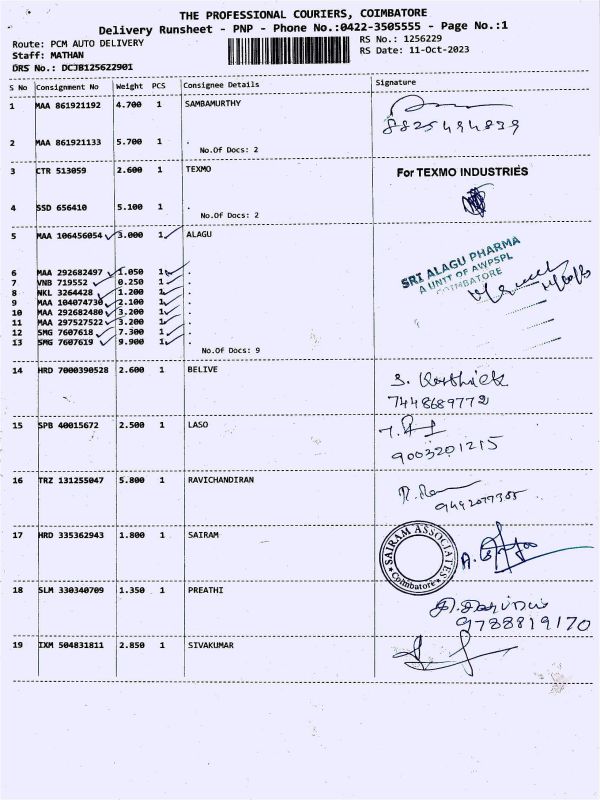 THE PROFESSIONAL COURIERS, COIMBATORE
Delivery Runsheet - PNP - Phone No.:0422-3505555 - Page No.:1
Route: PCM AUTO DELIVERY RS No.: 1256229
Staff: MATHAN RS Date: 11-Oct-2023
DRS No.: DCJB125622901
S No Consignment No Weight PCS Consignee Details Signature
1 MAA 861921192 4.700 1 SAMBAMURTHY
8825494839
2 MAA 861921133 5.700 1 .
No.Of Docs: 2
3 CTR 513059 2.600 1 TEXMO For TEXMO INDUSTRIES
4 SSD 656410 5.100 1 .
No.Of Docs: 2
5 MAA 106456054 3.000 1 ALAGU
SRI ALAGU PHARMA
A UNIT OF AWPSPL
COIMBATORE
6 MAA 292682497 1.050 1 .
7 VNB 719552 0.250 1 .
8 NKL 3264428 1.200 1 .
9 MAA 104074730 2.100 1 .
10 MAA 292682480 3.200 1 .
11 MAA 297527522 3.200 1 .
12 SMG 7607618 7.300 1 .
13 SMG 7607619 9.900 1 .
No.Of Docs: 9
14 HRD 7000390528 2.600 1 BELIVE
S. Karthick
7448689772
15 SPB 40015672 2.500 1 LASO
9003201215
16 TRZ 131255047 5.800 1 RAVICHANDIRAN
17 HRD 335362943 1.800 1 SAIRAM
SAIRAM ASSOCIATES
Coimbatore
18 SLM 330340709 1.350 1 PREATHI
9788819170
19 IXM 504831811 2.850 1 SIVAKUMAR